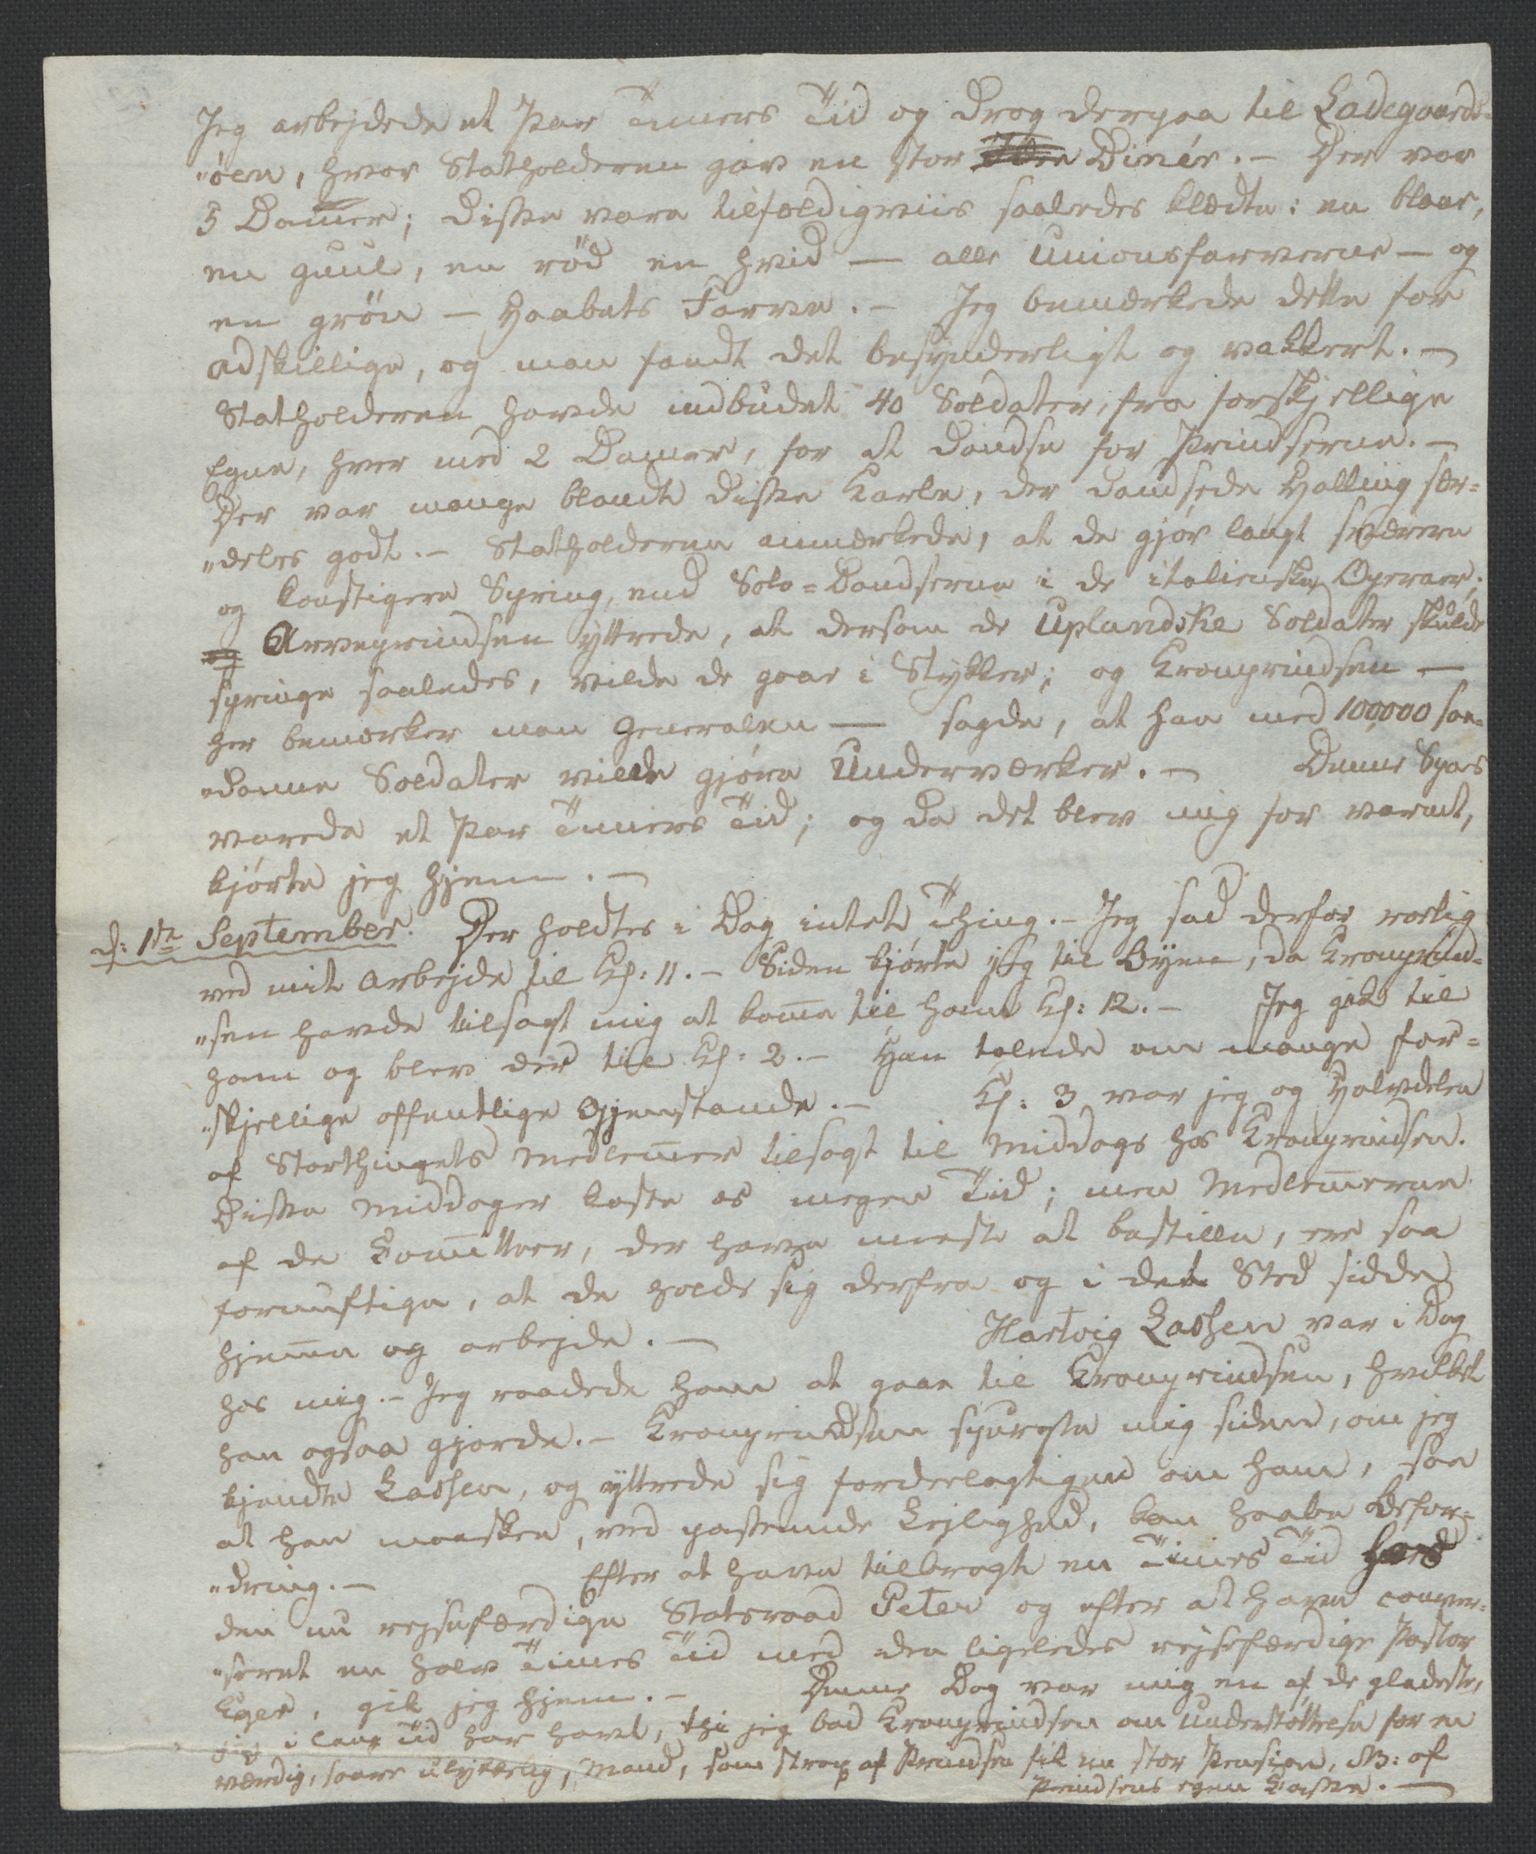 Jeg arbejdede et Par Timers Tid og drog derpaa til Ladegaards-
"øen, hvor Statholderen gav en stor Dinér. - Der var
5 Damer; disse vare tilfældigviis saaledes klædte: en blaae,
en guul, en rød en hvid — alle Unionsfarverne — og
en grøn — Haabets Farve. - Jeg bemærkede dette for
adskillige, og man fandt det besynderligt og vakkert. -
Statholderen havde indbudet 40 Soldater, fra forskjellige
Egne, hver med 2 Damer, for at dandse for Prindserne. -
Der var mange blandt disse Karle, der dandsede Halling sær=
"deles godt. - Statholderen anmærkede, at de gjør langt sværere
og konstigere Spring, end Solo=Dandserne i de italienske Operaer;
og Arveprindsen yttrede, at dersom de Uplandske Soldater skulde
springe saaledes, vilde de gaae i Stykker; og Kronprindsen —
her bemærker man Generalen — sagde, at han med 100,000 saa=
"danne Soldater vilde gjøre Underværker. - Denne Spas
varede et Par Timers Tid; og da det blev mig for varmt,
kjørte jeg hjem. -
d: 1ste September. Der holdtes i Dag intet Thing. - Jeg sad derfor rolig
ved mit Arbejde til Kl: 11. - Siden kjørte jeg til Byen, da Kronprind=
"sen havde tilsagt mig at komme til ham Kl: 12. - Jeg gik til
ham og blev der til Kl: 2. - Han talede om mange for=
"skjellige offentlige Gjenstande. - Kl: 3 var jeg og Halvdelen
af Storthingets Medlemer tilsagt til Middags hos Kronprindsen.
Disse Middager koste os megen Tid; men Medlemerne
af de Comitteer, der have meest at bestille, ere saa
fornuftige, at de holde sig derfra og i det Sted sidde
hjemme og arbejde. - Hartvig Lassen var i Dag
hos mig. - Jeg raadede ham at gaae til Kronprindsen, hvilket
han ogsaa gjorde. - Kronprindsen spurgte mig siden, om jeg
kjendte Lassen, og yttrede sig fordeelagtigen om ham, saa
at han maaskee, ved passende Lejlighed, kan haabe Befor=
"dring. - Efter at have tilbragt en Times Tid hos
den nu rejsefærdige Statsraad Peter og efter at have conver=
"seret en halv Times Tid med den ligeledes rejsefærdige Pastor
, gik jeg hjem. - Denne Dag var mig en af de gladeste,
jeg i lang Tid har havt, thi jeg bad Kronprindsen om Understøttelse for en
værdig, saare ulykkelig, Mand, som strax af Prindsen fik en stor Pension, NB: af
Prindsens egen Casse. -